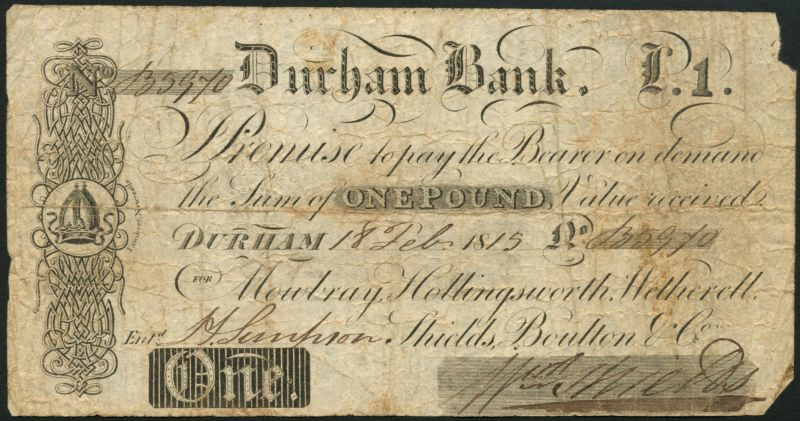 No B5970 Durham Bank. £.1.
I Promise to pay the Bearer on demand
the Sum of ONE POUND, Value received
DURHAM 18 Feb. 1815 No B5970
FOR Mowbray, Hollingsworth, Wetherell,
Entd. Simpson Shields, Boulton & Co.
One. Wm Shields